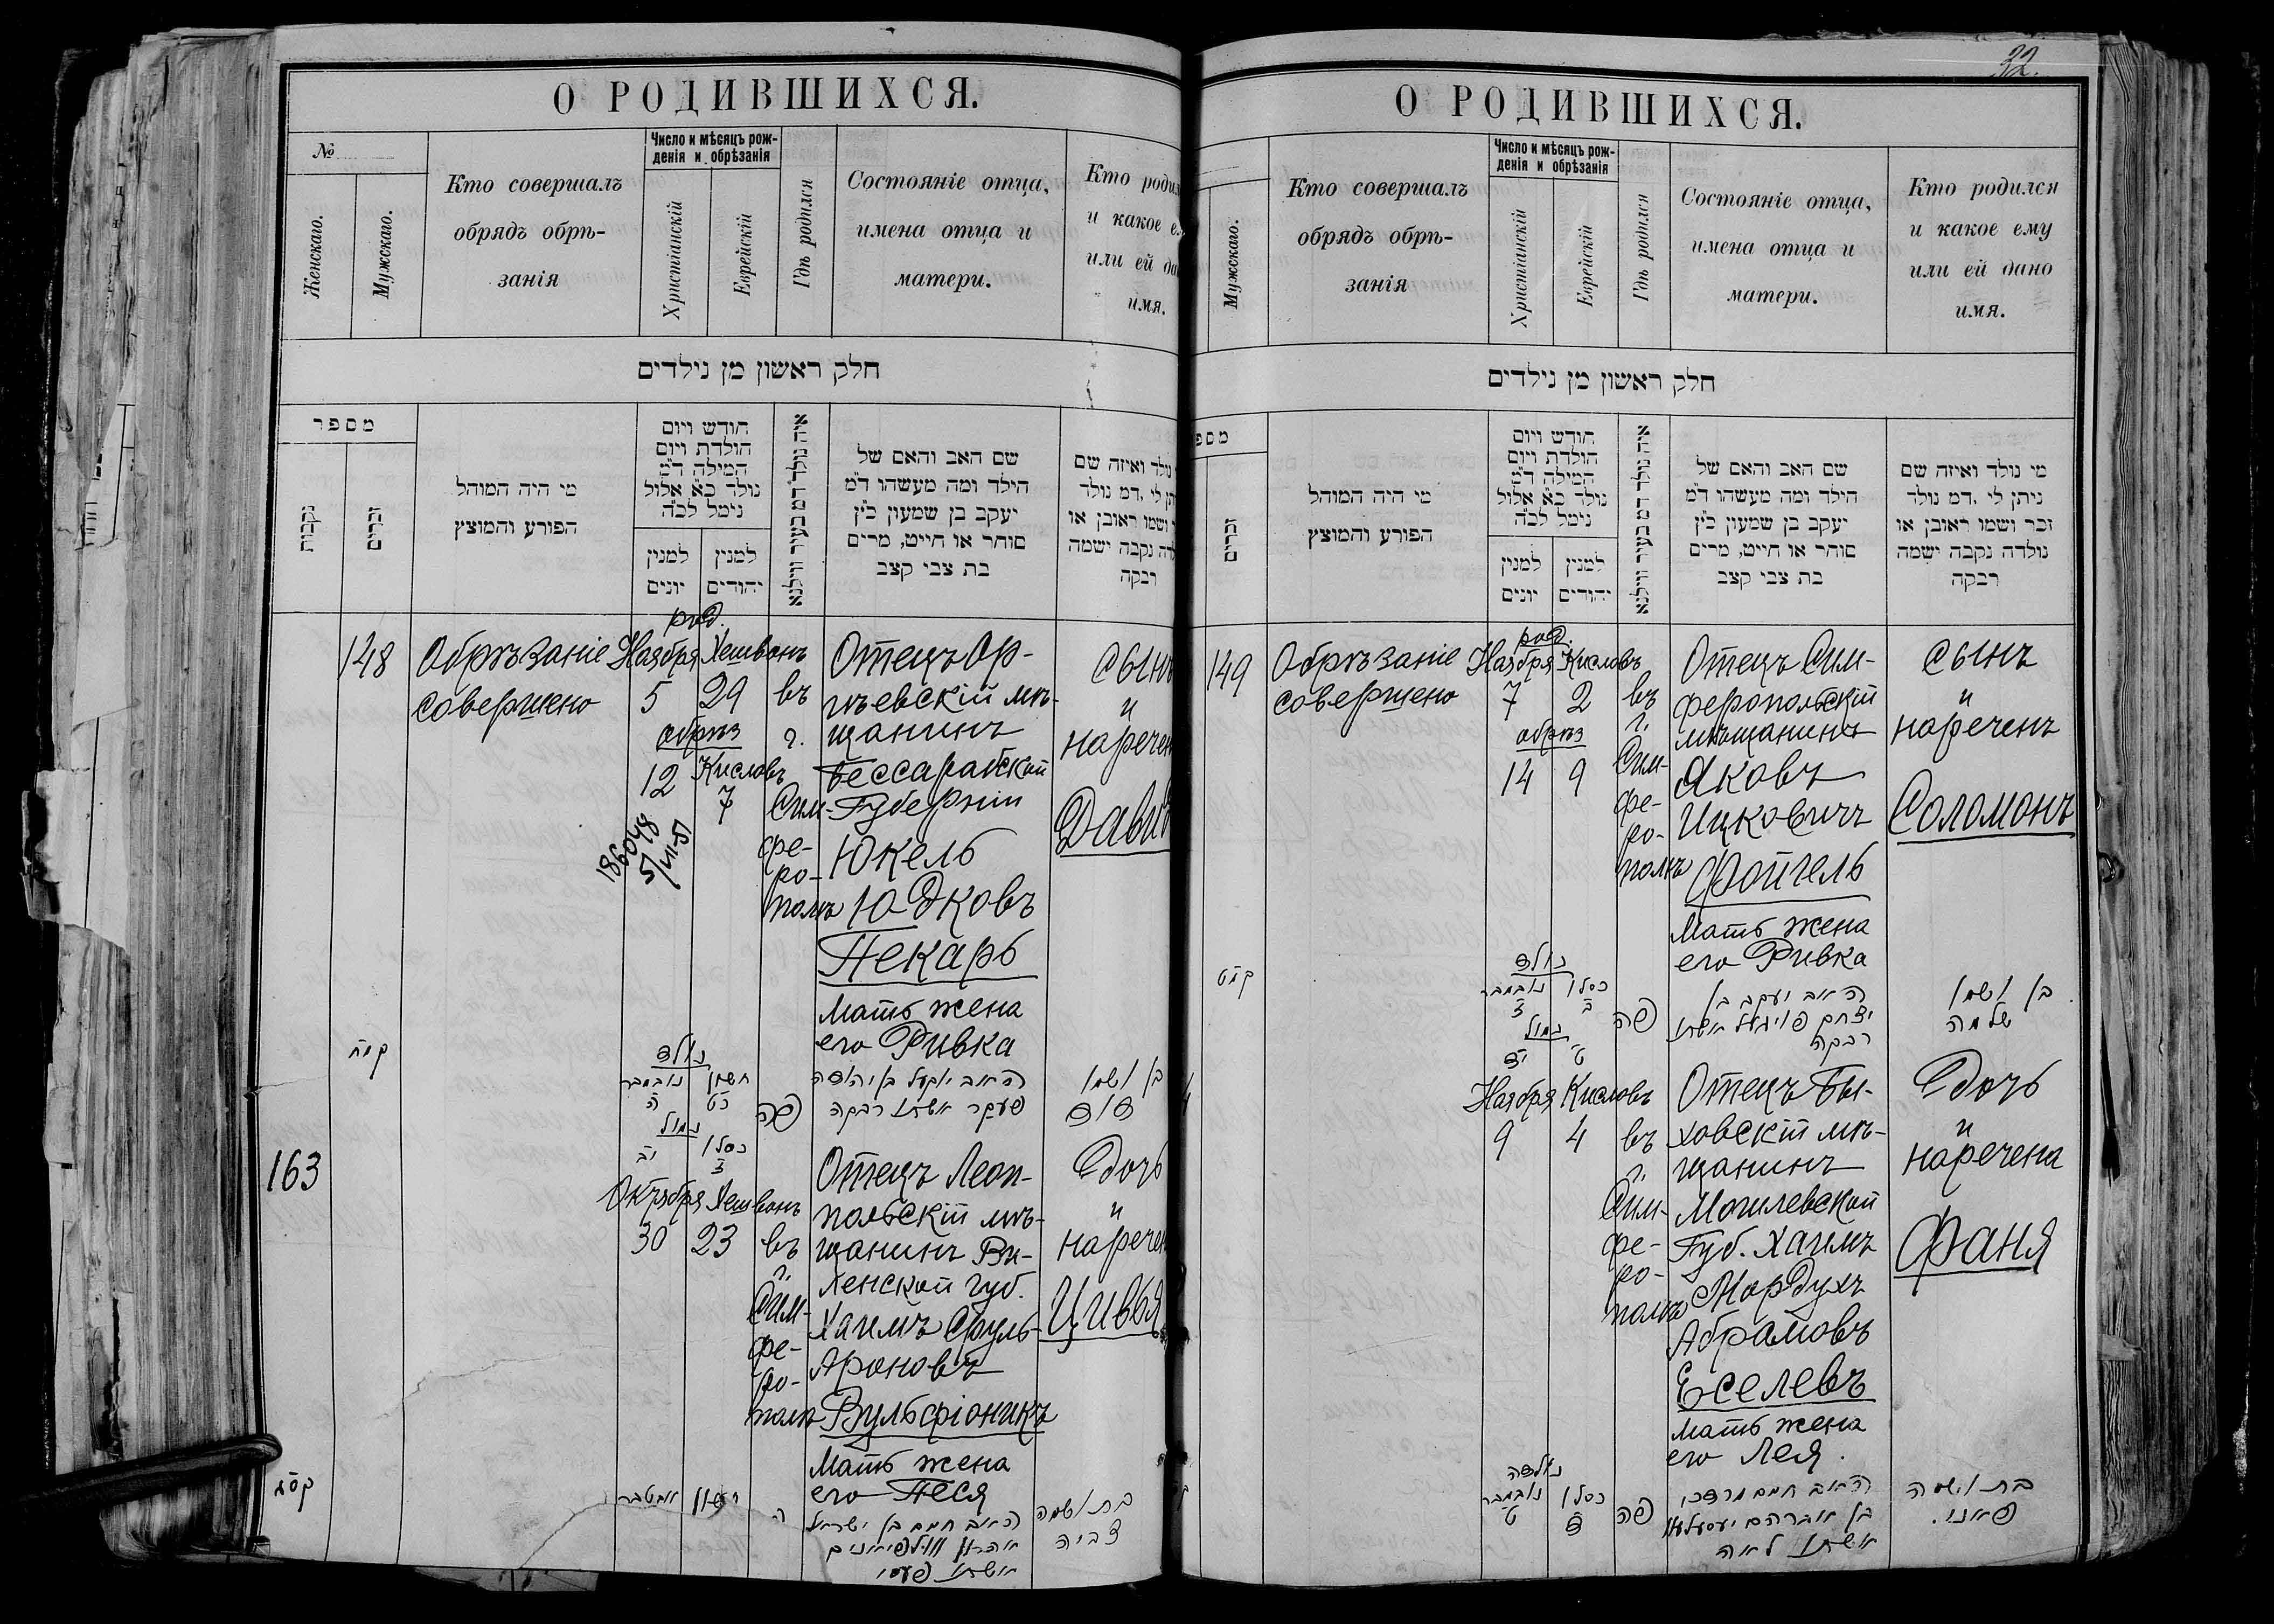 О РОДИВШИХСЯ.
№
Женскаго.
Мужскаго.
Кто совершалъ
обрядъ обрѣ-
занія
Число и мѣсяцъ рож-
денія и обрѣзанія
Христіанскій
Еврейскій
Гдѣ родился
Состояніе отца,
имена отца и
матери.
Кто роди
и какое е
или ей да
имя.
חלק ראשון מן נילדים
מספר
נקבות
זכרים
מי היה המוהל
הפורע והמוצץ
חודש ויום
הולדת ויום
המילה ד״מ
נולד כ״א אלול
נימל לכ״ה
למנין
יונים
למנין
יהודים
איה נולד ד״מ בעיר ווילנא
שם האב והאם של
הילד ומה מעשהו ד״מ
יעקב בן שמעון כ״ץ
סוחר או חייט, מרים
בת צבי קצב
נולד ואיזה שם
תן לי, דמ נולד
ושמו ראובן או
לדה נקבה ישמה
רבקה
148
Обрѣзаніе
совершено
род.
Ноября Хешвонъ
5 29
обрѣз
Кисловъ
12 7
186048
5/VI-51
въ
г.
Сим-
фе-
ро-
полѣ
Отецъ Ор-
гѣевскій мѣ-
щанинъ
Бессарабской
Губерніи
Юкель
Юдковъ
Пекарь
Мать жена
его Ривка
сынъ
и
наречен
Давид
קמח
נולד
חשון נובמבר
כט ה
נמול
כסלו
ז יב
פה
האב יוקעל בן יהודה
פעקר אשתו רבקה
בן ושמו
דוד
163
Октября Хешвонъ
30 23
въ
г.
Сим-
фе-
ро-
полѣ
Отецъ Леон-
польскій мѣ-
щанинъ Ви-
ленской губ.
Хаимъ Сруль-
Ароновъ
Вульфіоникъ
Мать жена
его Песя
Дочь
и
наречен
Цивья
קסג
חשון אקטבר
האב חיים בן ישראל
אהרון
אשתו פעסי
בת ושמה
צביה
32.
О РОДИВШИХСЯ.
Мужскаго.
Кто совершалъ
обрядъ обрѣ-
занія
Число и мѣсяцъ рож-
денія и обрѣзанія
Христіанскій
Еврейскій
Гдѣ родился
Состояніе отца,
имена отца и
матери.
Кто родился
и какое ему
или ей дано
имя.
חלק ראשון מן נילדים
מספ
זכרים
מי היה המוהל
הפורע והמוצץ
חודש ויום
הולדת ויום
המילה ד״מ
נולד כ״א אלול
נימל לכ״ה
למנין
יונים
למנין
יהודים
איה נולד ד״מ בעיר ווילנא
שם האב והאם של
הילד ומה מעשהו ד״מ
יעקב בן שמעון כ״ץ
סוחר או חייט, מרים
בת צבי קצב
מי נולד ואיזה שם
ניתן לי, דמ נולד
זכר ושמו ראובן או
נולדה נקבה ישמה
רבקה
149
Обрѣзаніе
совершено
род.
Ноября Кисловъ
7 2
обрѣз
14 9
въ
г.
Сим-
фе-
ро-
полѣ
Отецъ Сим-
феропольскій
мѣщанинъ
Яковъ
Ицковичъ
Фойгель
Мать жена
его Ривка
сынъ
и
нареченъ
Соломонъ
קמט
נולד
כסלו נובמבר
ב ז
נמול
ט יד
פה
האב יעקב בן
יצחק פויגעל אשתו
רבקה
בן ושמו
שלמה
Ноября Кисловъ
9 4
въ
г.
Сим-
фе-
ро-
полѣ
Отецъ Бы-
ховскій мѣ-
щанинъ
Могилевской
Губ. Хаимъ
Мордухъ
Абрамовъ
Еселевъ
Мать жена
его Лея.
Дочь
и
наречена
Фаня
נולדה
כסלו נובמבר
ד ט
פה
האב חיים מרדכי
בן אברהם
אשתו לאה
בת ושמה
פאני.